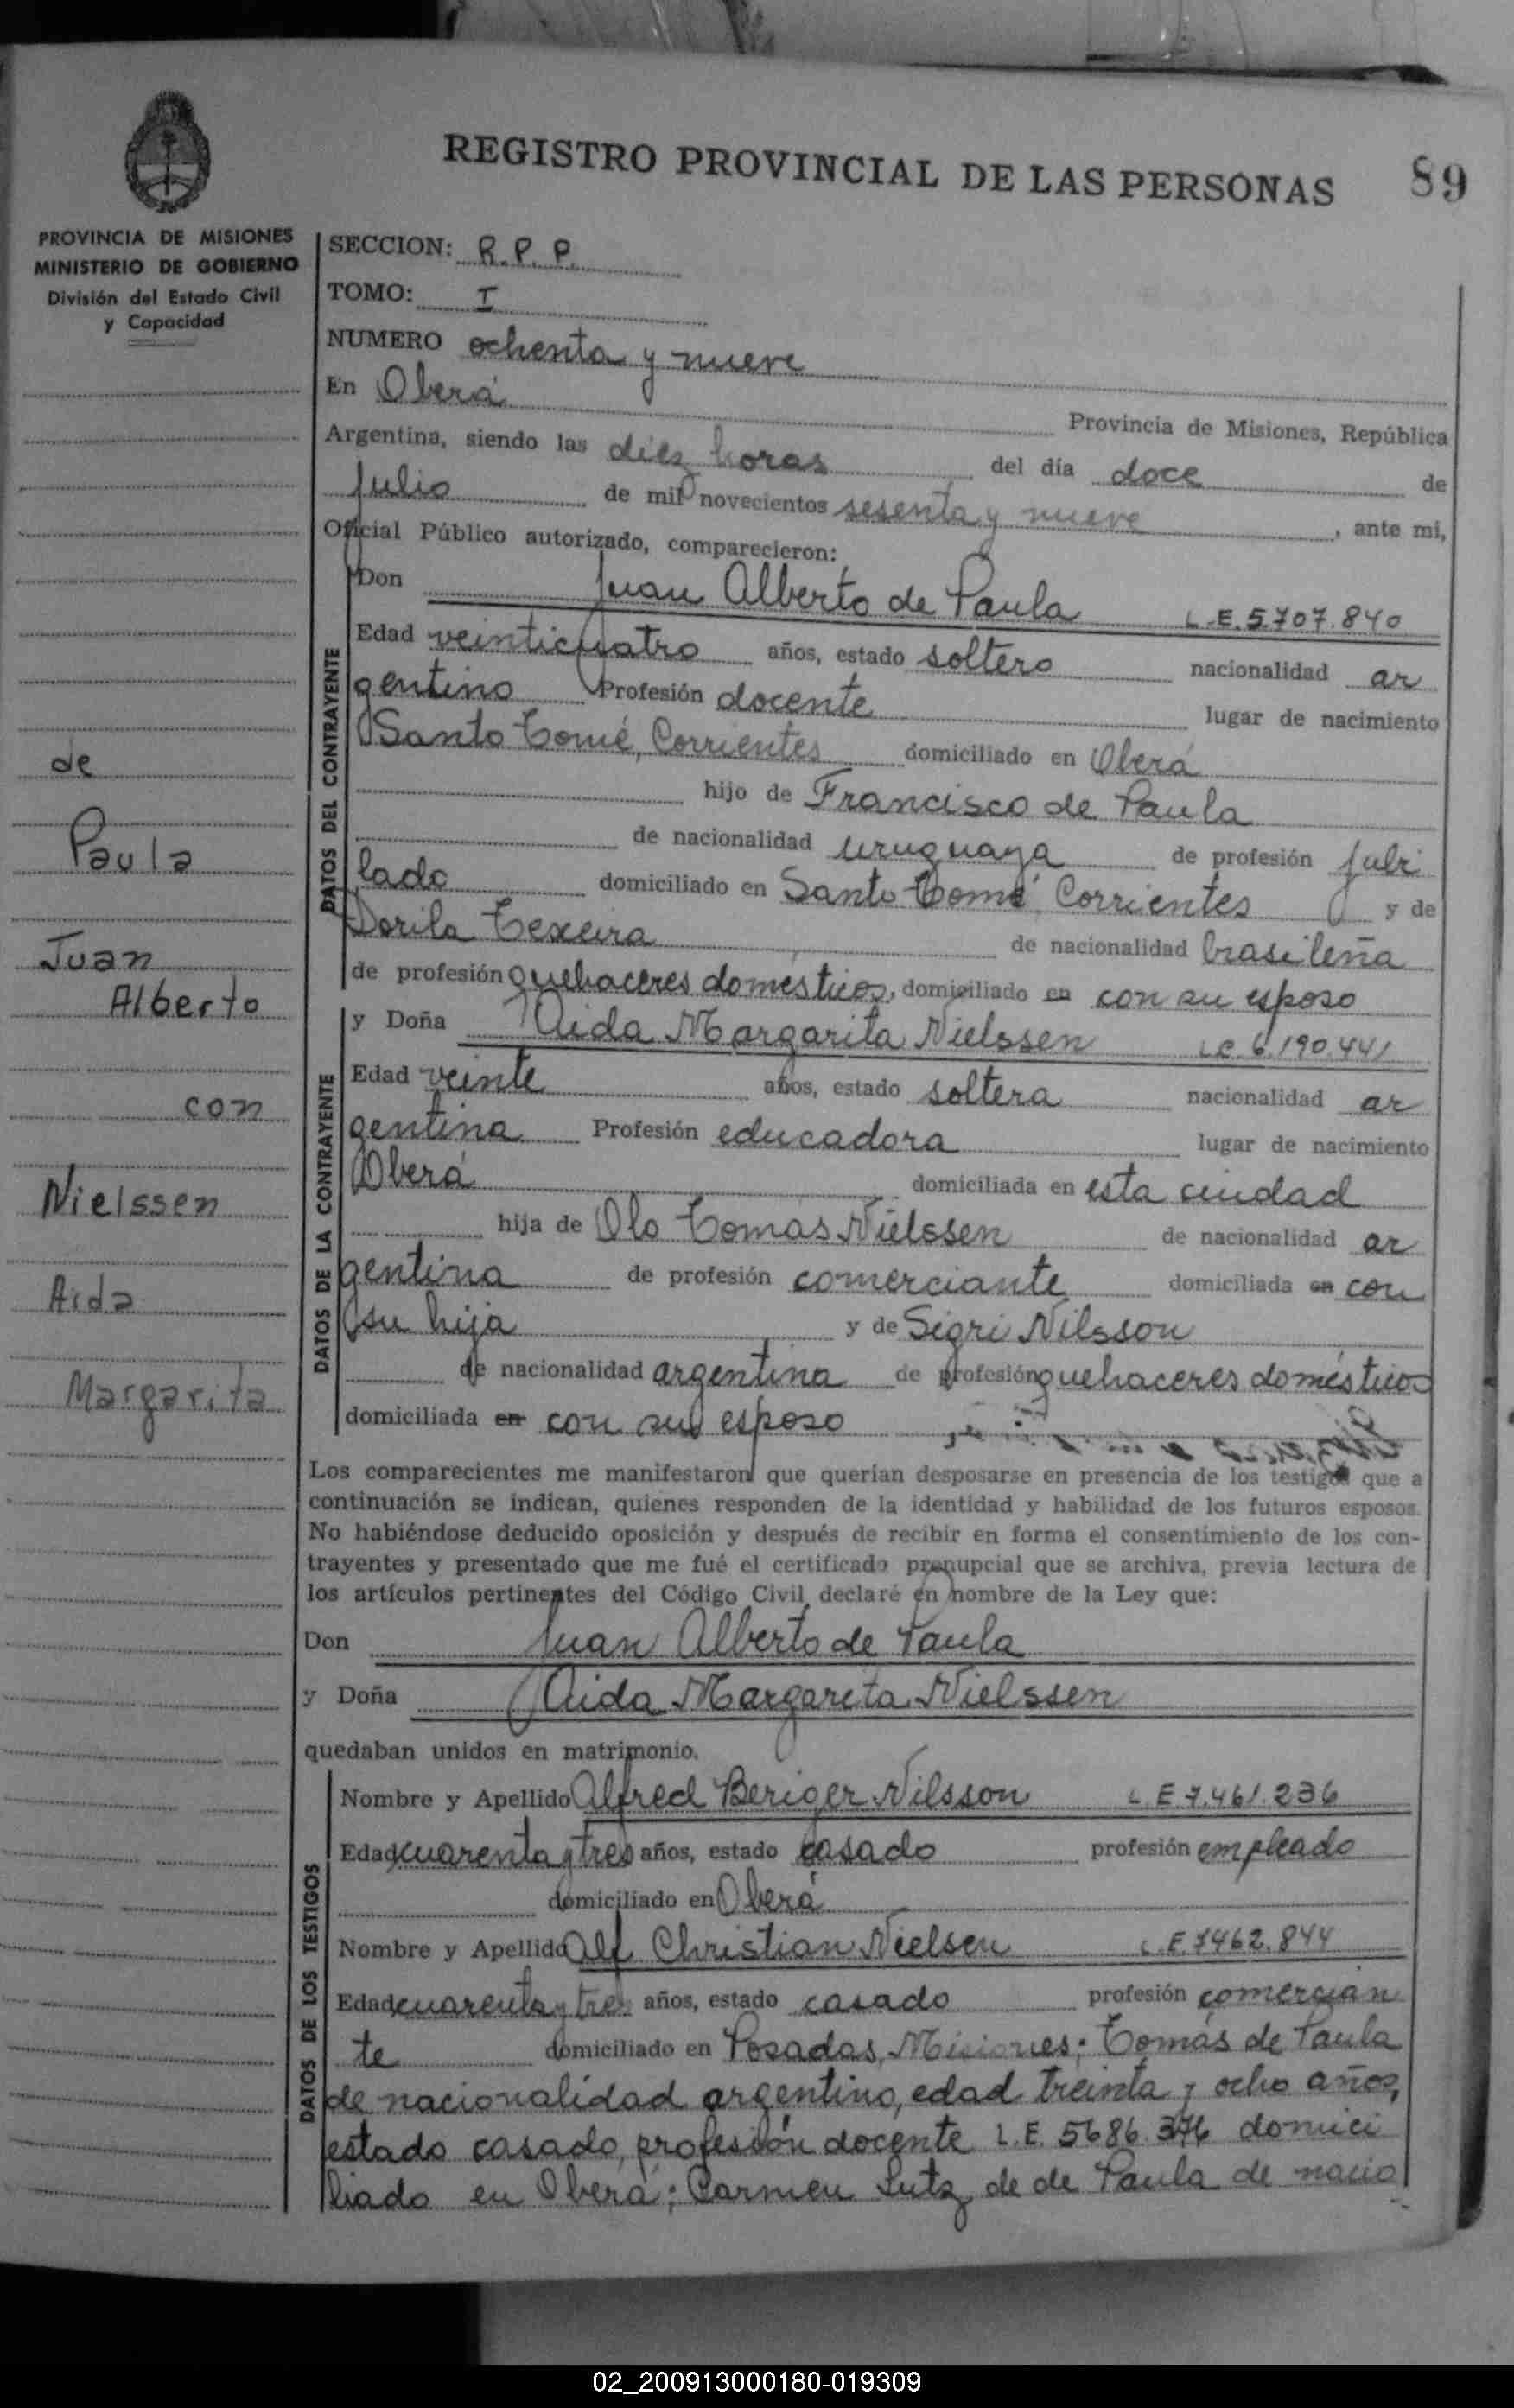 REGISTRO PROVINCIAL DE LAS PERSONAS 89
PROVINCIA DE MISIONES
MINISTERIO DE GOBIERNO
División del Estado Civil
y Capacidad
de
Paula
Juan
Alberto
con
Nielssen
Aida
Margarita
SECCION: R.P.P.
TOMO: I
NUMERO ochenta y nueve
En Oberá Provincia de Misiones, República
Argentina, siendo las diez horas del día doce de
julio de mil novecientos sesenta y nueve, ante mi,
Oficial Público autorizado, comparecieron:
DATOS DEL CONTRAYENTE
Don Juan Alberto de Paula L.E. 5.707.840
Edad veinticuatro años, estado soltero nacionalidad ar
gentino Profesión docente lugar de nacimiento
Santo Tomé, Corrientes domiciliado en Oberá
hijo de Francisco de Paula
de nacionalidad uruguaya de profesión jubi
lado domiciliado en Santo Tomé Corrientes y de
Dorila Texeira de nacionalidad brasileña
de profesión quehaceres domésticos, domiciliado en con su esposo
DATOS DE LA CONTRAYENTE
y Doña Aida Margarita Nielssen L.C. 6.190.441
Edad veinte años, estado soltera nacionalidad ar
gentina Profesión educadora lugar de nacimiento
Oberá domiciliada en esta ciudad
hija de Olo Tomas Nielssen de nacionalidad ar
gentina de profesión comerciante domiciliada en con
su hija y de Sigri Nilsson
de nacionalidad argentina de profesión quehaceres domésticos
domiciliada en con su esposo
Los comparecientes me manifestaron que querían desposarse en presencia de los testigos que a
continuación se indican, quienes responden de la identidad y habilidad de los futuros esposos.
No habiéndose deducido oposición y después de recibir en forma el consentimiento de los con-
trayentes y presentado que me fué el certificado prenupcial que se archiva, previa lectura de
los artículos pertinentes del Código Civil, declaré en nombre de la Ley que:
Don Juan Alberto de Paula
y Doña Aida Margarita Nielssen
quedaban unidos en matrimonio.
DATOS DE LOS TESTIGOS
Nombre y Apellido Alfred Beriger Nilsson L.E 7.461.236
Edad cuarenta y tres años, estado casado profesión empleado
domiciliado en Oberá
Nombre y Apellido Alf Christian Nielsen L.E. 7462.844
Edad cuarenta y tres años, estado casado profesión comercian
te domiciliado en Posadas, Misiones; Tomás de Paula
de nacionalidad argentino, edad treinta y ocho años,
estado casado, profesión docente L.E. 5686.376 domici
liado en Oberá; Carmen Lutz de de Paula de nacio
02_200913000180-019309